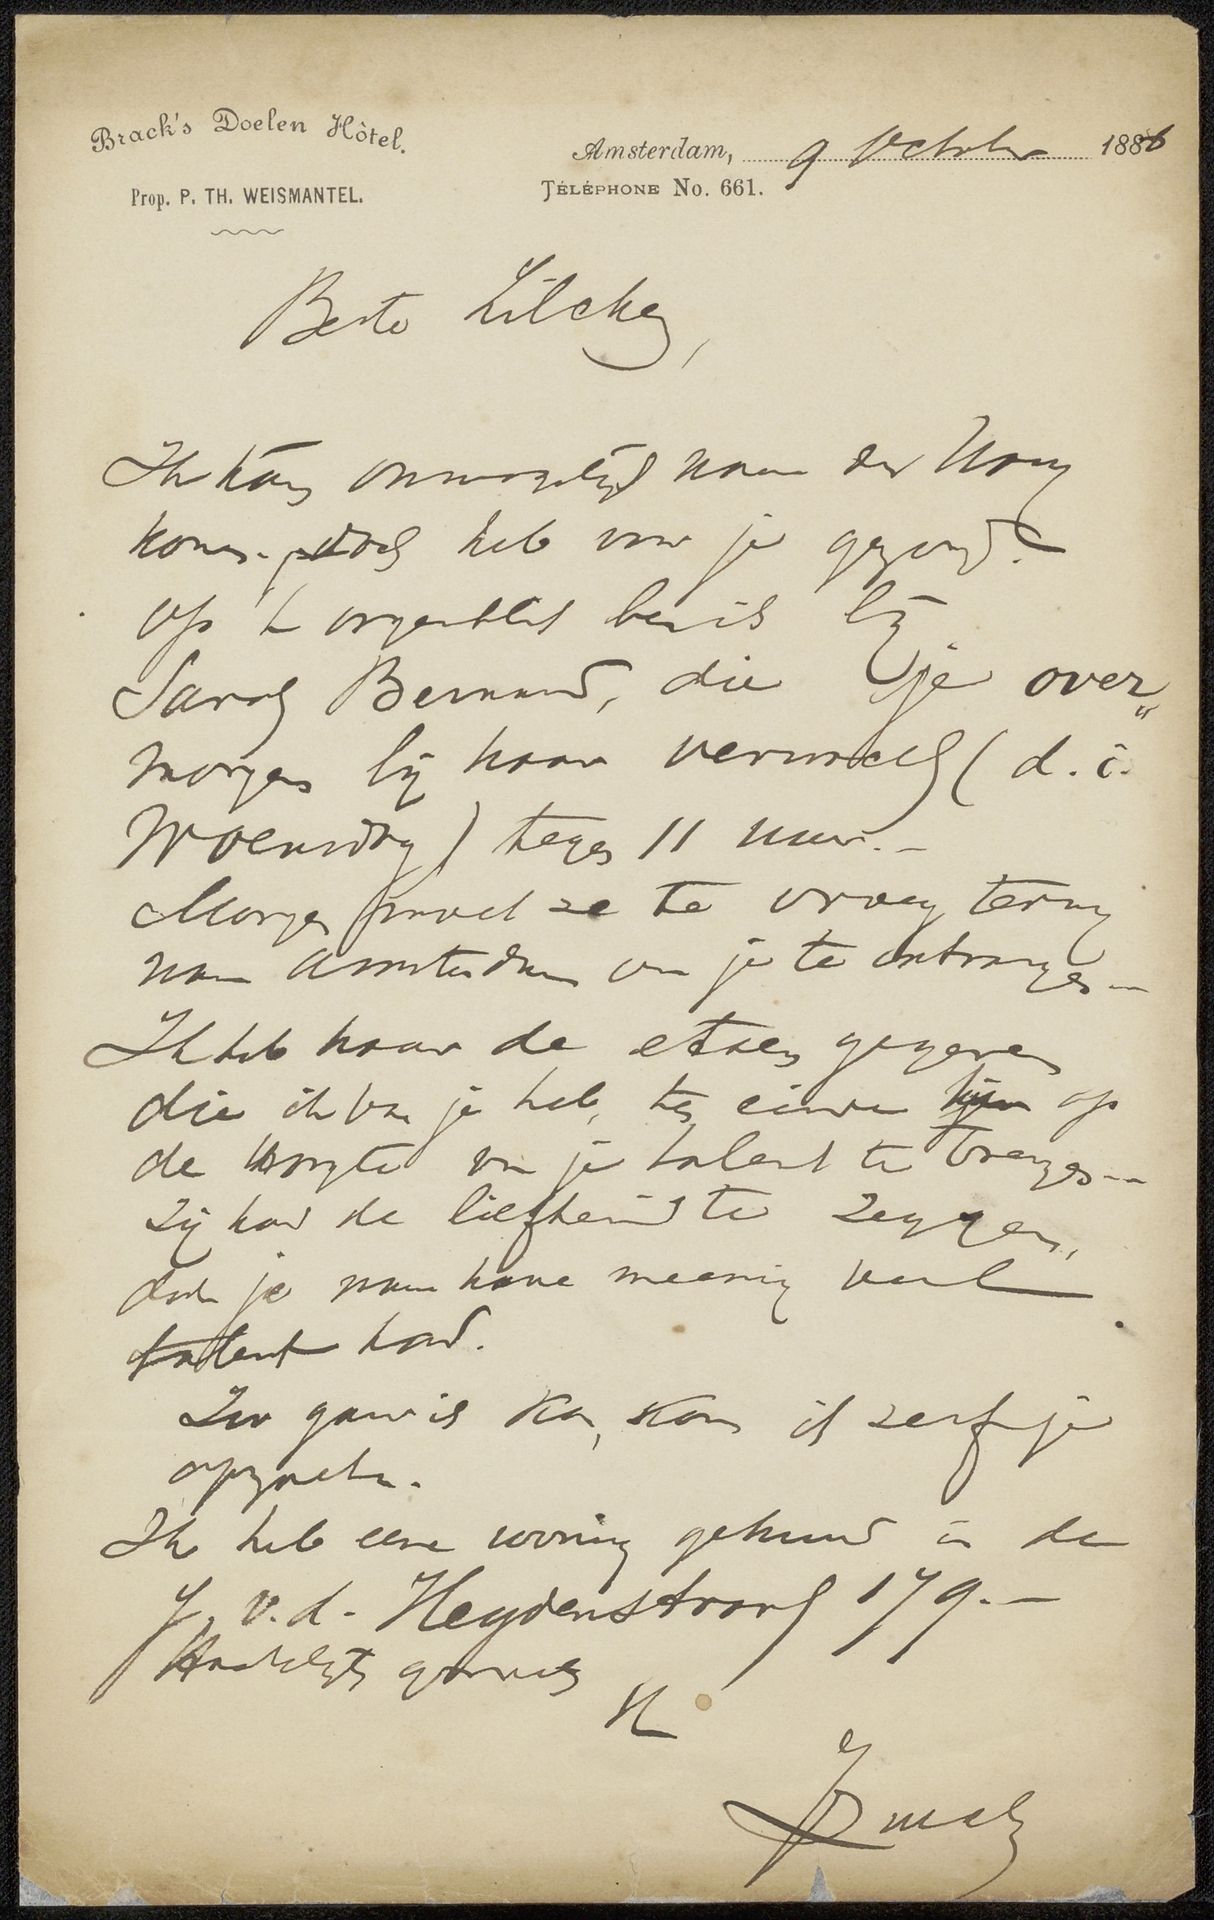 Brack's Doelen Hôtel.
Prop. P. TH. WEISMANTEL.
Amsterdam, 9 October 1886
TÉLÉPHONE No. 661.
Beste Zilcken,
Ik kan onmogelijk naar den Haag
komen, doch heb voor je gezorgd.
Op 't oogenblik ben ik bij
Sarah Bernard, die je over„
morgen bij haar verwacht (d.i.
Woensdag) tegen 11 uur.–
Morgen moet ze te vroeg terug
naar Amsterdam om je te ontvangen.–
Ik heb haar de etsen gegeven
die ik van je heb, ten einde haar op
de hoogte van je talent te brengen.–
Zij had de liefheid te zeggen,
dat je naar hare meening veel
talent had.
Zoo gauw ik kan, kom ik zelf je
opzoeken.
Ik heb eene woning gehuurd in de
J. v.d. Heydenstraat 179.–
Hartelijk gegroet